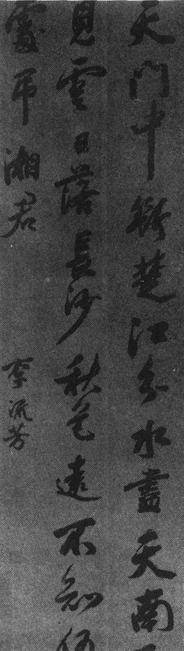 天門中斷楚江分水盡天南
見雲日落長沙秋色遠不知何
處弔湘君
李流芳